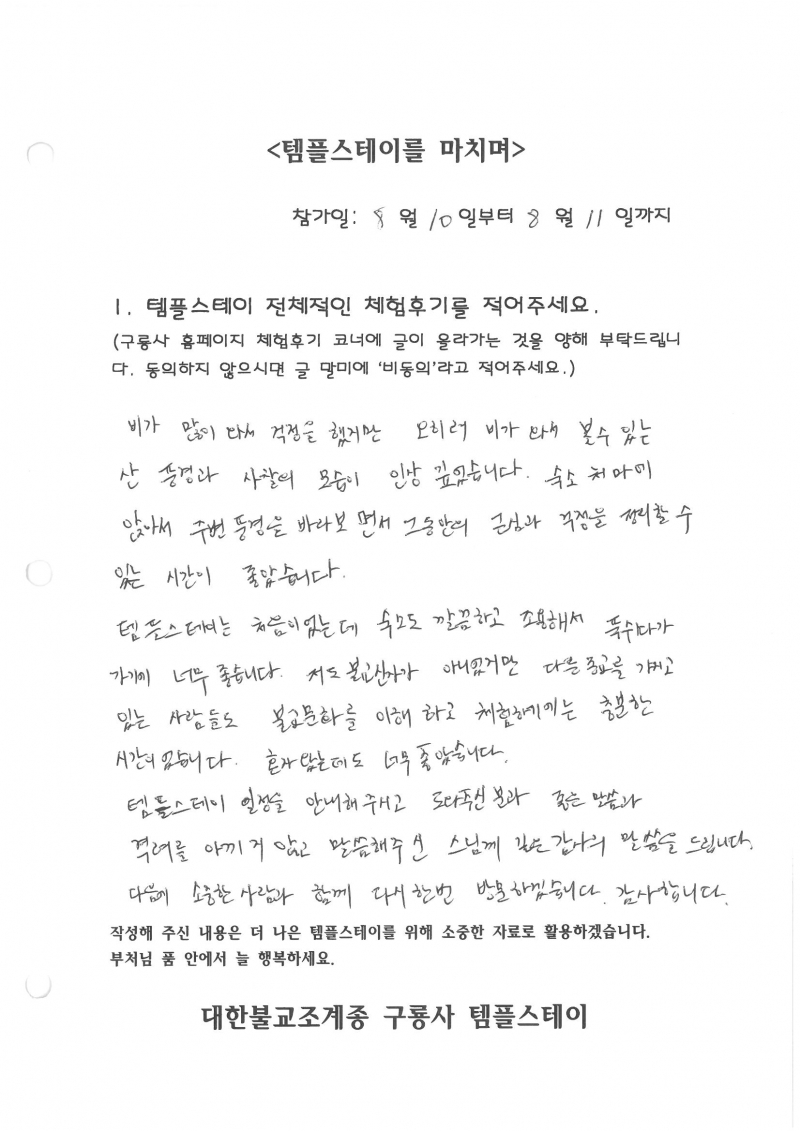 <템플스테이를 마치며>
참가일: 8 월 10 일부터 8 월 11 일까지
1. 템플스테이 전체적인 체험후기를 적어주세요.
(구룡사 홈페이지 체험후기 코너에 글이 올라가는 것을 양해 부탁드립니
다. 동의하지 않으시면 글 말미에 '비동의'라고 적어주세요.)
비가 많이 와서 걱정을 했지만 오히려 비가 와서 볼수 있는
산 풍경과 사찰의 모습이 인상 깊었습니다. 숙소 처마에
앉아서 주변 풍경을 바라보면서 그동안의 근심과 걱정을 정리할 수
있는 시간이 좋았습니다.
템플스테이는 처음이었는데 숙소도 깔끔하고 조용해서 푹쉬다가
가기에 너무 좋습니다. 저도 불교신자가 아니었지만 다른 종교를 가지고
있는 사람들도 불교문화를 이해하고 체험하기에는 충분한
시간이었습니다. 혼자 왔는데도 너무 좋았습니다.
템플스테이 일정을 안내해주시고 도와주신 분과 좋은 말씀과
격려를 아끼지 않고 말씀해주신 스님께 깊은 감사의 말씀을 드립니다.
다음에 소중한 사람과 함께 다시한번 방문하겠습니다. 감사합니다.
작성해 주신 내용은 더 나은 템플스테이를 위해 소중한 자료로 활용하겠습니다.
부처님 품 안에서 늘 행복하세요.
대한불교조계종 구룡사 템플스테이